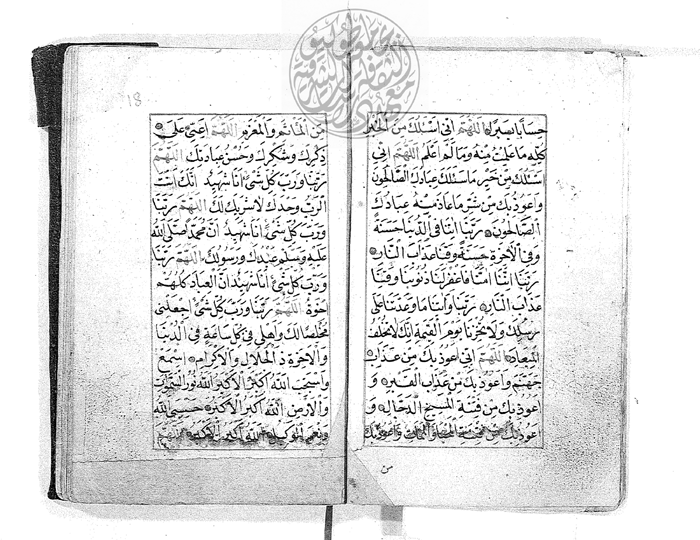 حسابا يسيرا اللهم اني اسئلك من الخير
كله ما علمت منه وما لم اعلم اللهم اني
اسئلك من خير ما سئلك عبادك الصالحون
واعوذ بك من شر ما عاذ منه عبادك
الصالحون ربنا اتنا في الدنيا حسنة
وفي الاخرة حسنة وقنا عذاب النار
ربنا اننا امنا فاغفر لنا ذنوبنا وقنا
عذاب النار ربنا واتنا ما وعدتنا على
رسلك ولا تخزنا يوم القيمة انك لا تخلف
الميعاد اللهم اني اعوذ بك من عذاب
جهنم واعوذ بك من عذاب القبر و
اعوذ بك من فتنة المسيح الدجال و
اعوذ بك من فتنة المحيا والممات واعوذ بك
من
18
من المأثم والمغرم اللهم اعني على
ذكرك وشكرك وحسن عبادتك اللهم
ربنا ورب كل شئ انا شهيد انك انت
الرب وحدك لا شريك لك اللهم ربنا
ورب كل شئ انا شهيد ان محمدا صلى الله
عليه وسلم عبدك ورسولك اللهم ربنا
ورب كل شئ انا شهيد ان العباد كلهم
اخوة اللهم ربنا ورب كل شئ اجعلني
مخلصا لك واهلي في كل ساعة في الدنيا
والاخرة ذ الجلال والاكرام اسمع
واستجب الله اكبر الاكبر الله نور السموات
والارض الله اكبر الاكبر حسبي الله
ونعم الوكيل الله اكبر الاكبر